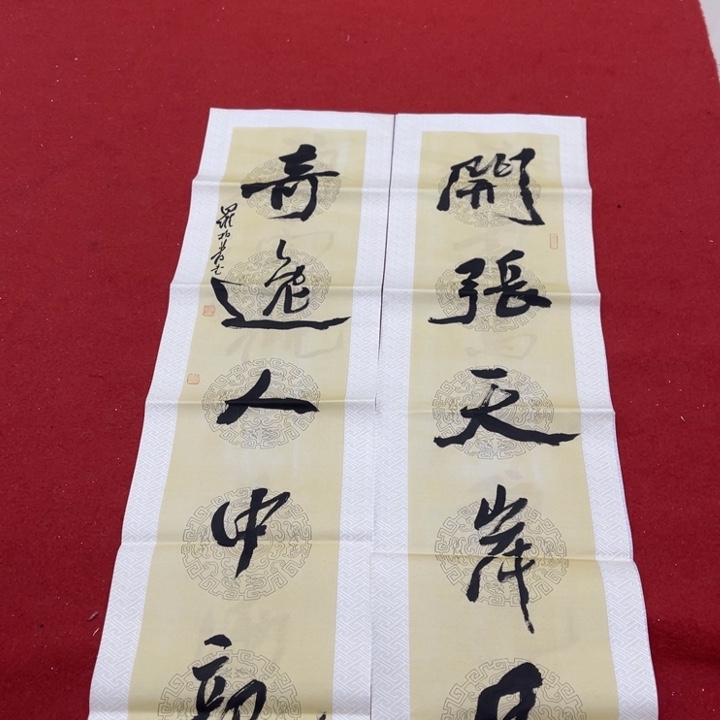 開張天岸
奇逸人中